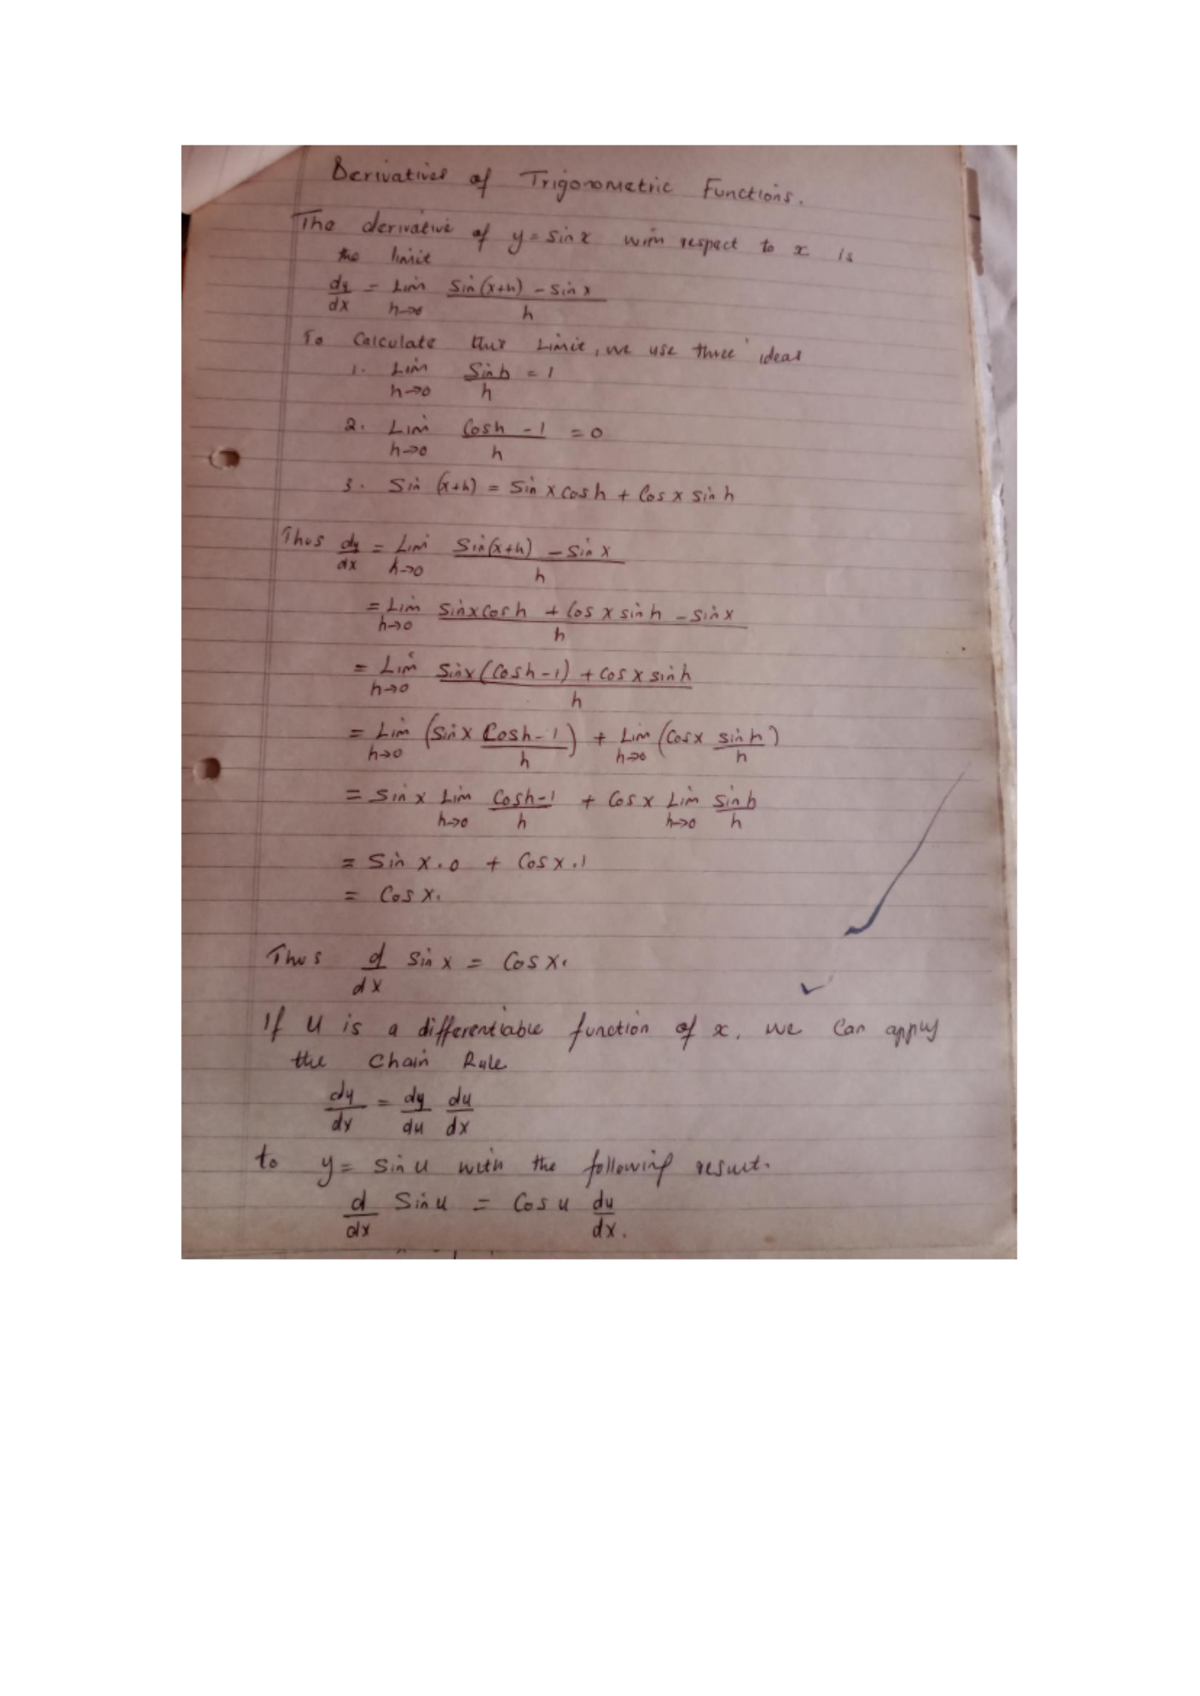 Derivatives of Trigonometric Functions.
The derivative of y = sin x with respect to x is
the limit
dy/dx = Lim h→0 Sin(x+h) - Sin x / h
To Calculate this Limit, we use three ideas
1. Lim h→0 Sin h / h = 1
2. Lim h→0 Cosh - 1 / h = 0
3. Sin (x+h) = Sin x cosh + Cos x sin h
Thus dy/dx = Lim h→0 Sin(x+h) - Sin x / h
= Lim h→0 Sinx Cosh + Cos x sinh - Sinx / h
= Lim h→0 Sinx (Cosh - 1) + Cos x sinh / h
= Lim h→0 (Sinx Cosh - 1 / h) + Lim h→0 (Cosx sinh / h)
= Sin x Lim h→0 Cosh-1 / h + Cos x Lim h→0 Sinh / h
= Sin x . 0 + Cos x . 1
= Cos x.
Thus d/dx Sin x = Cos x.
If U is a differentiable function of x, we Can apply
the Chain Rule
dy/dx = dy/du du/dx
to y = Sin U with the following result.
d/dx Sin u = Cos u du/dx.